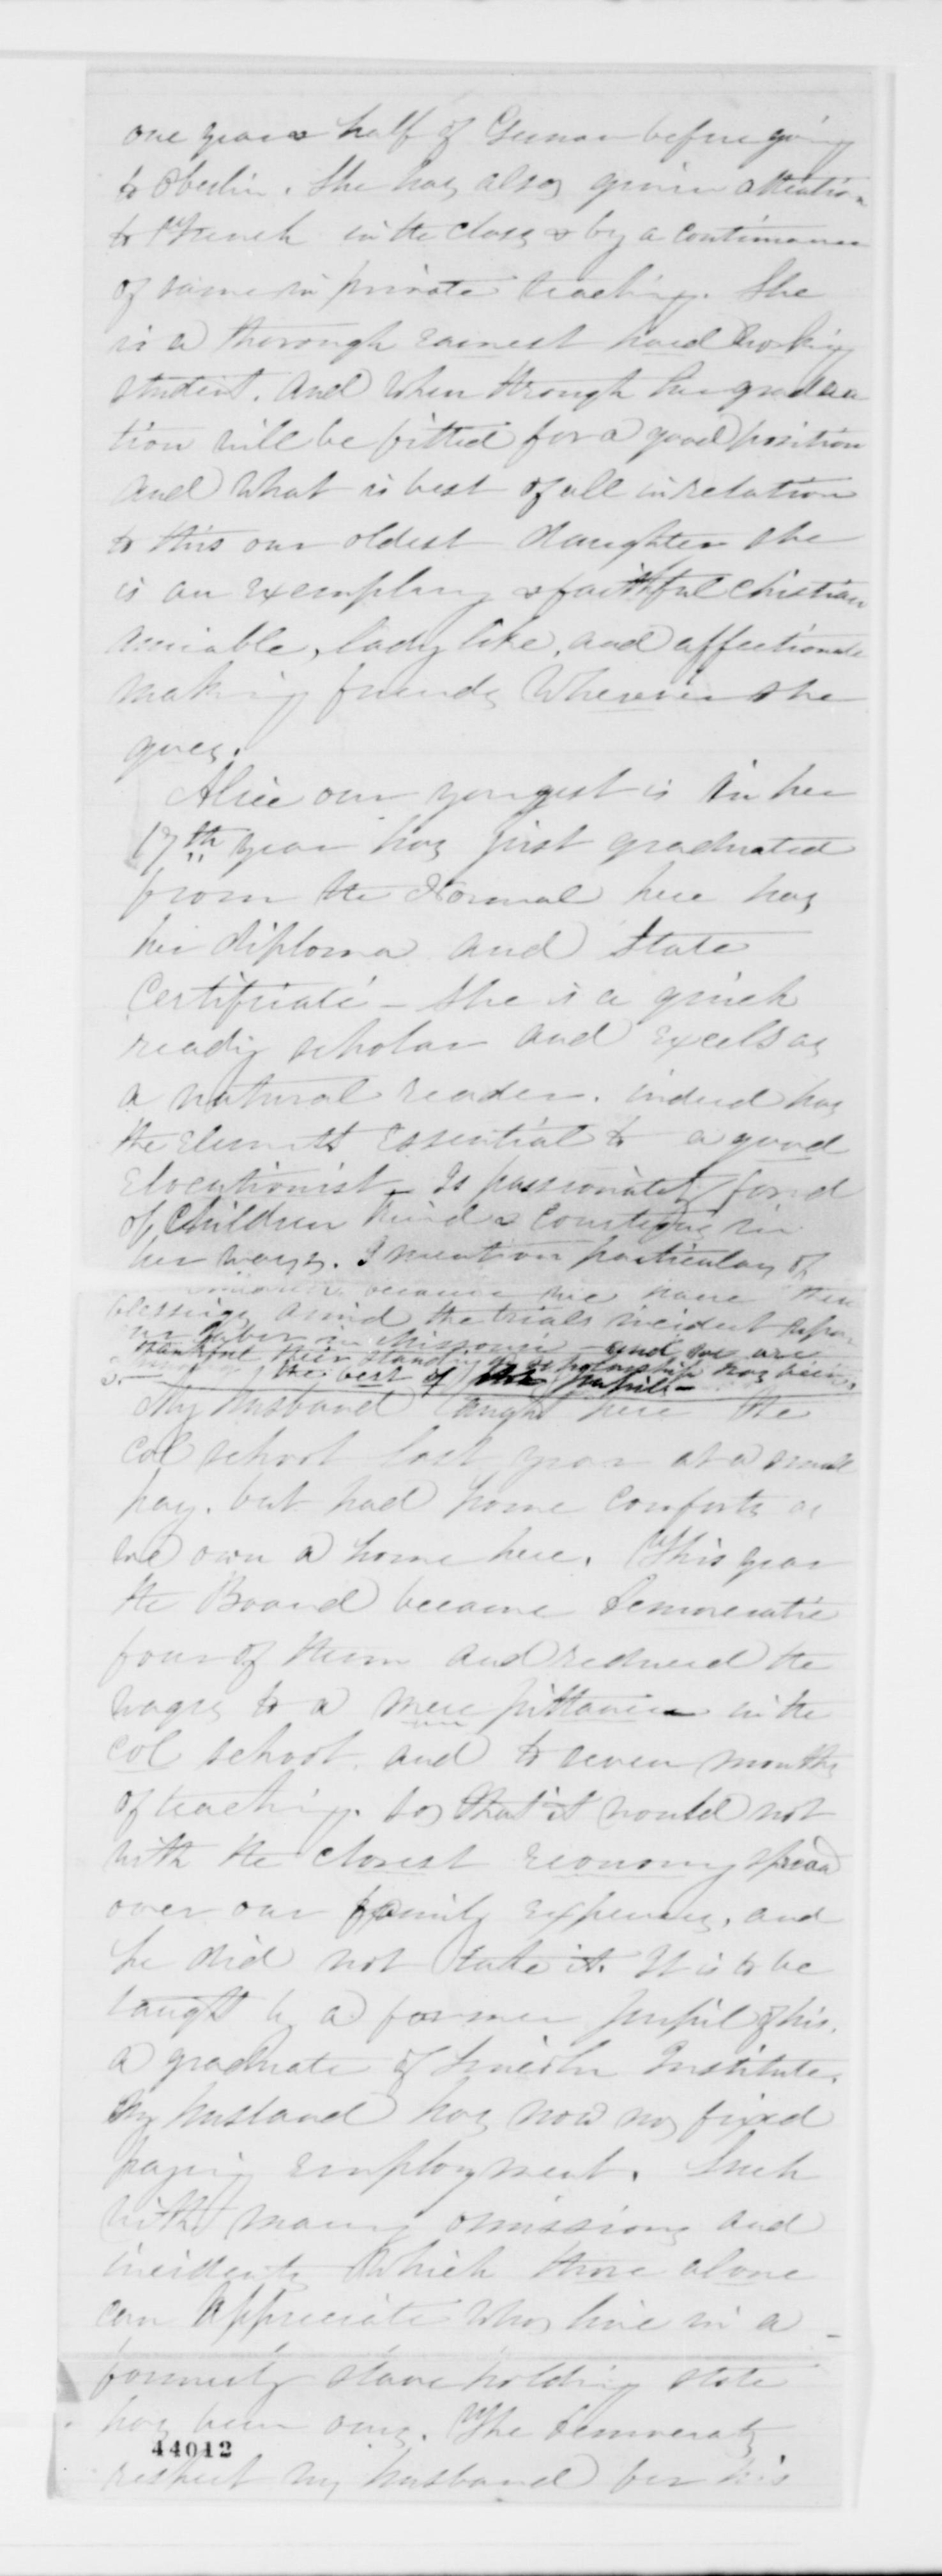 one year & half of German before going
to Oberlin. She has also given attention
to French in the class & by a continuance
of same in private teaching. She
is a thorough earnest hard working
student. And when through her gradua
tion will be fitted for a good position
And what is best of all in relation
to this our oldest daughter she
is an exemplary & faithful Christian
amiable, lady like, and affectionate
making friends wherever she
goes.
Alice our youngest is in her
17th year has just graduated
from the Normal here has
her diploma and State
Certificate - She is a quick
ready scholar and excels as
a natural reader. indeed has
the elements essential to a good
Elocutionist - Is passionately fond
of children kind & courteous in
her ways. I mention particulars of
because we have these
blessings amid the trials incident upon
our labor in Missouri and we are
thankful their standing & scholarship has been
the best of pupils -
My husband taught here the
Col school last year at a small
pay. but had home comforts as
we own a home here. This year
the Board became Democratic
four of them and reduced the
wages to a mere pittance in the
col school, and to seven months
of teaching. so that it would not
with the closest economy spread
over our family expenses, and
he did not take it. It is to be
taught by a former pupil of his.
a graduate of Lincoln Institute.
My husband has now no fixed
paying employment. Such
with many omissions and
incidents which those alone
can appreciate who live in a
formerly slave holding state
has been ours. The Democrats
respect my husband for his
44012